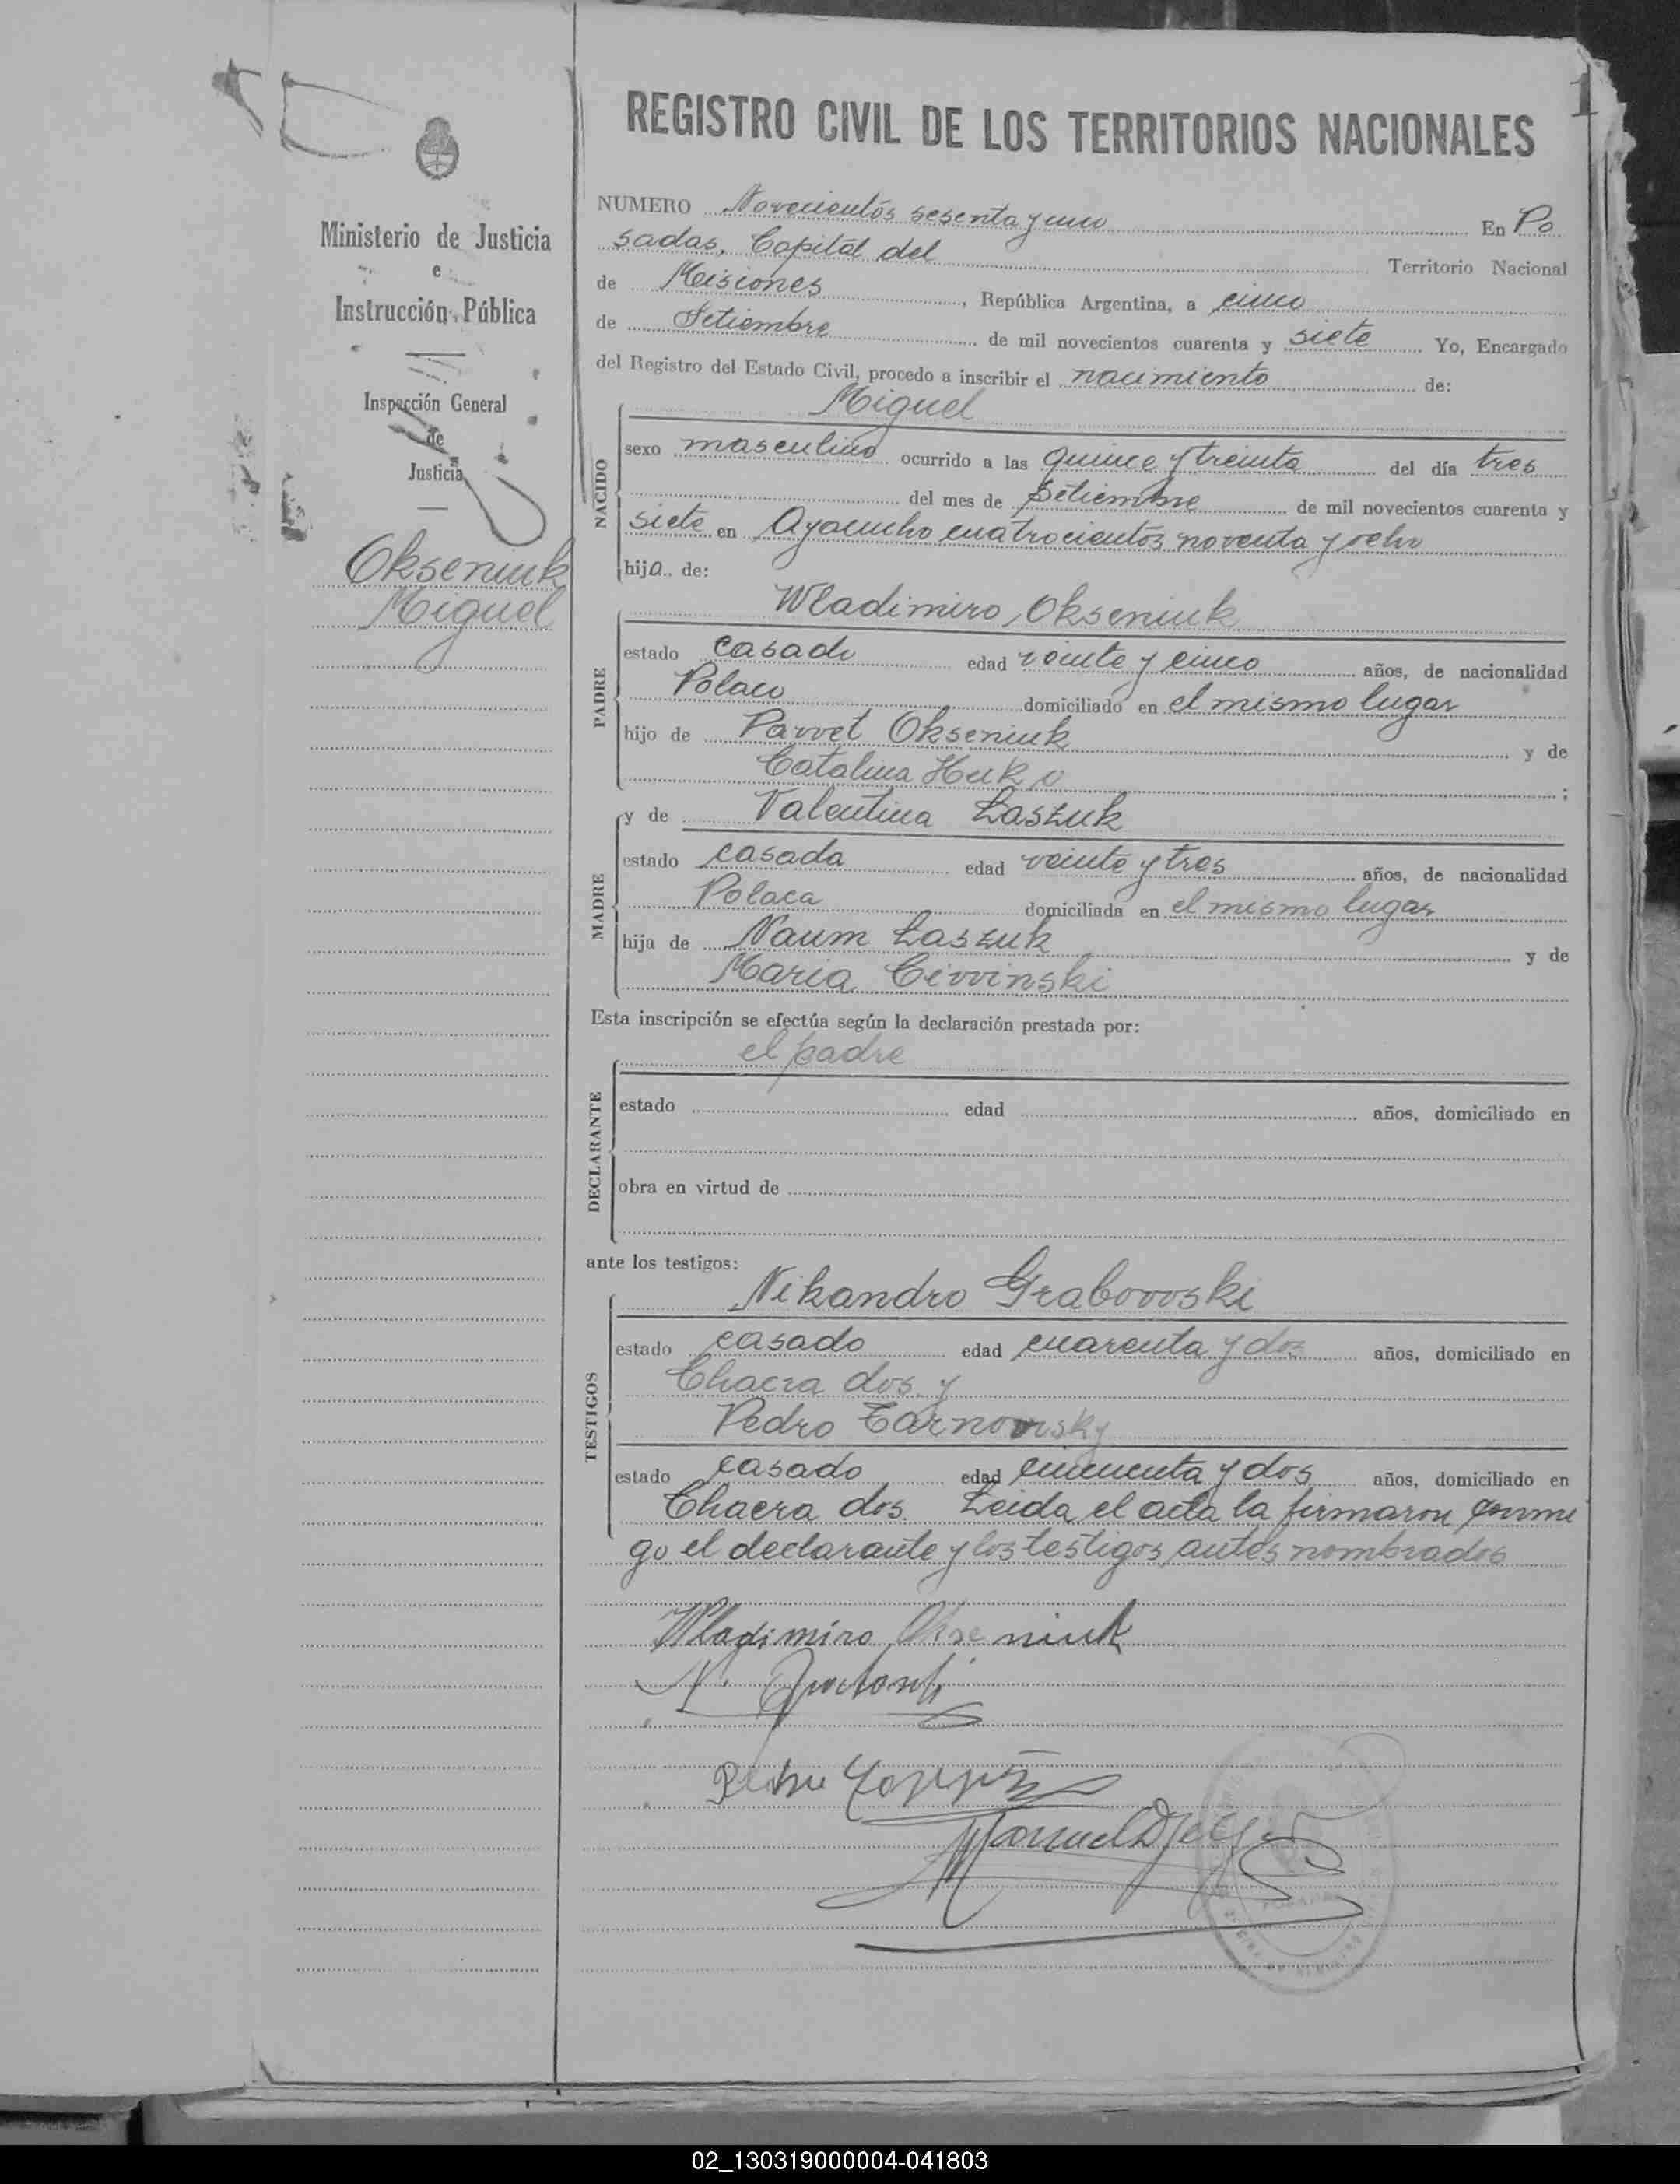 1
REGISTRO CIVIL DE LOS TERRITORIOS NACIONALES
Ministerio de Justicia
e
Instrucción Pública
Inspección General
de
Justicia
Okseniuk
Miguel
NUMERO Novecientos sesenta y uno En Po
sadas, Capital del Territorio Nacional
de Misiones, República Argentina, a cinco
de Setiembre de mil novecientos cuarenta y siete Yo, Encargado
del Registro del Estado Civil, procedo a inscribir el nacimiento de:
NACIDO
Miguel
sexo masculino ocurrido a las quince y treinta del día tres
del mes de Setiembre de mil novecientos cuarenta y
siete en Ayacucho cuatrocientos noventa y ocho
hijo de:
PADRE
Wladimiro Okseniuk
estado casado edad veinte y cinco años, de nacionalidad
Polaco domiciliado en el mismo lugar
hijo de Pavvet Okseniuk y de
Catalina Huk ;
MADRE
y de Valentina Łaszuk
estado casada edad veinte y tres años, de nacionalidad
Polaca domiciliada en el mismo lugar
hija de Naum Łaszuk y de
Maria Civvinski
Esta inscripción se efectúa según la declaración prestada por:
DECLARANTE
el padre
estado edad años, domiciliado en
obra en virtud de
ante los testigos:
TESTIGOS
Nikandro Grabovvski
estado casado edad cuarenta y dos años, domiciliado en
Chacra dos y
Pedro Tarnovvsky
estado casado edad cincuenta y dos años, domiciliado en
Chacra dos. Leida el acta la firmaron conmi
go el declarante y los testigos antes nombrados
Wladimiro Okseniuk
N.
Pedro
Manuel
02_130319000004-041803